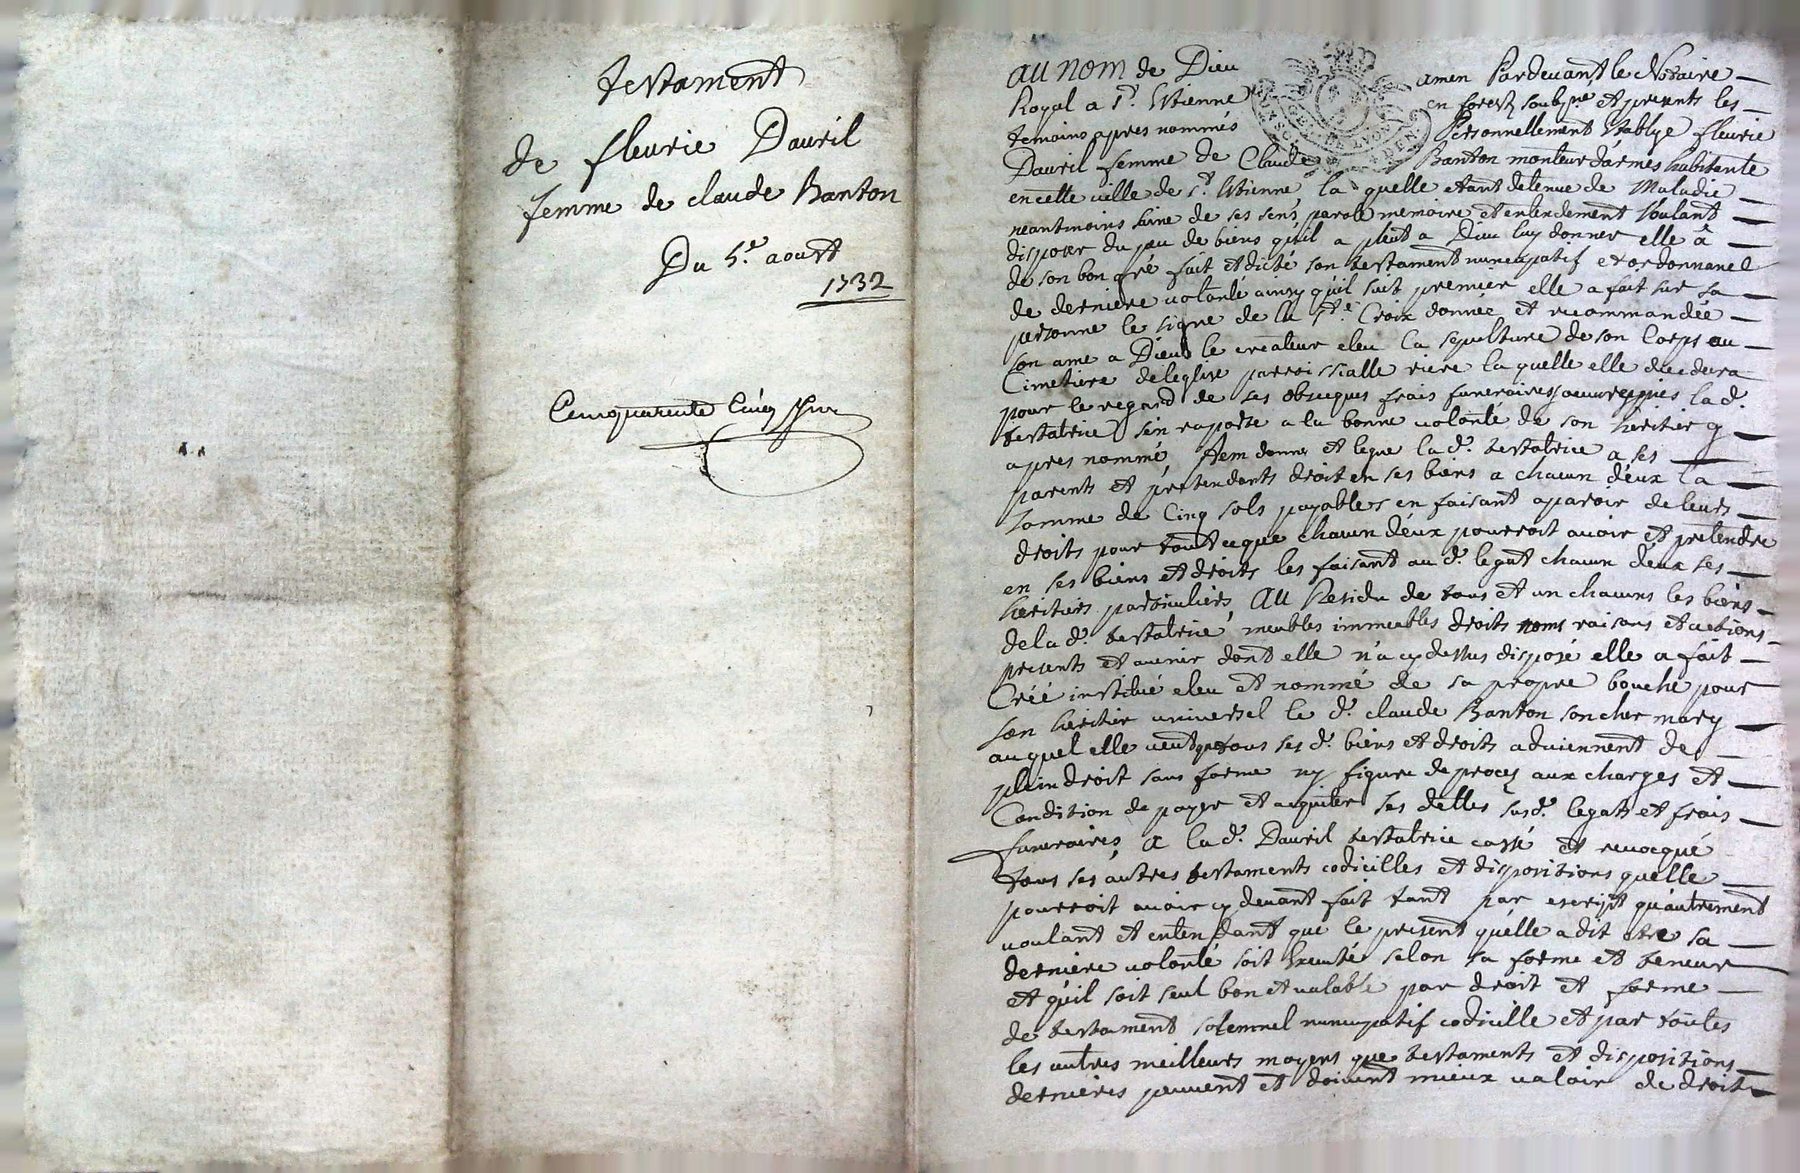 testament
de fleurie Dauril
femme de claude Banton
Du 5.e aoust
1732
Cinquante Cinq
au nom de Dieu amen Pardeuant le Notaire
Royal a St. Etienne en forest soubsné et presents les
temoins apres nommés Personnellement Etablye fleurie
Dauril femme de Claude Banton monteur d'armes habitante
en cette uille de St. Etienne la quelle etant detenue de Maladie
neantmoins saine de ses sens parole memoire et entendement Voulant
disposer du peu de biens qu'il a pleut a Dieu luy donner elle à
de son bon gré fait et dicté son testament nuncupatif et ordonnance
de derniere uolonté ainsy qu'il suit premier elle a fait sur sa
personne le signe de la Ste. Croix donnée et recommandée
son ame a Dieu le createur eleu la sepulture de son Corps au
Cimetiere de leglise parroissialle riere la quelle elle decedera
pour le regard de ses obseques frais funeraires oeuures pies la d.
testatrice s'en raporte a la bonne uolonté de son heritier cy
apres nommé Item donne et legue la d. testatrice a ses
parents et pretendants droit en ses biens a chacun d'eux la
somme de Cinq sols payables en faisant aparoir de leurs
droits pour tout ce que chacun d'eux pourroit auoir et pretendre
en ses biens et droits les faisant au d. legat chacun d'eux ses
heritiers particuliers Au Residu de tous et un chacuns les biens
de la d. testatrice meubles immeubles droits noms raisons et actions
presents et auenir dont elle n'a cy dessus disposé elle a fait
Créé institué eleu et nommé de sa propre bouche pour
son heritier uniuersel le d. claude Banton son cher mary
auquel elle ueut que tous ses d. biens et droits aduiennent de
plein droit sans forme ny figure de proces aux charges et
Condition de payer et acquiter ses dettes susd. legats et frais
funeraires A la d. Dauril testatrice cassé et reuocqué
tous ses autres testaments codicilles et dispositions quelle
pourroit auoir cy deuant fait tant par escript qu'autrement
uoulant et entendant que le present qu'elle a dit etre sa
derniere uolonté soit Executé selon sa forme et teneur
et qu'il soit seul bon et ualable par droit et forme
de testament solemnel nuncupatif codicille et par toutes
les autres meilleurs moyens que testaments et dispositions
dernieres peuuent et doiuent mieux ualoir de droit